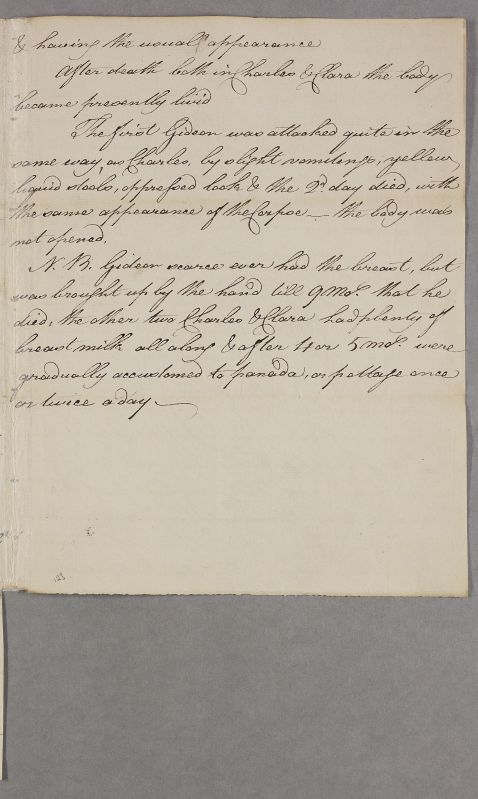 & having the usuall appearance
After death both in Charles & Clara the body
became presently livid
The first Gideon was attacked quite in the
same way, as Charles, by slight vomitings, yellow
liquid stools, oppressed look & the 2d. day died, with
the same appearance of the Corpse — the body was
not opened.
N. B. Gideon scarce ever had the breast, but
was brought up by the hand till 9 Mos. that he
died, the other two Charles & Clara had plenty of
breast milk all along & after 4 or 5 mos. were
gradually accustomed to panada, or pottage once
or twice a day —
123